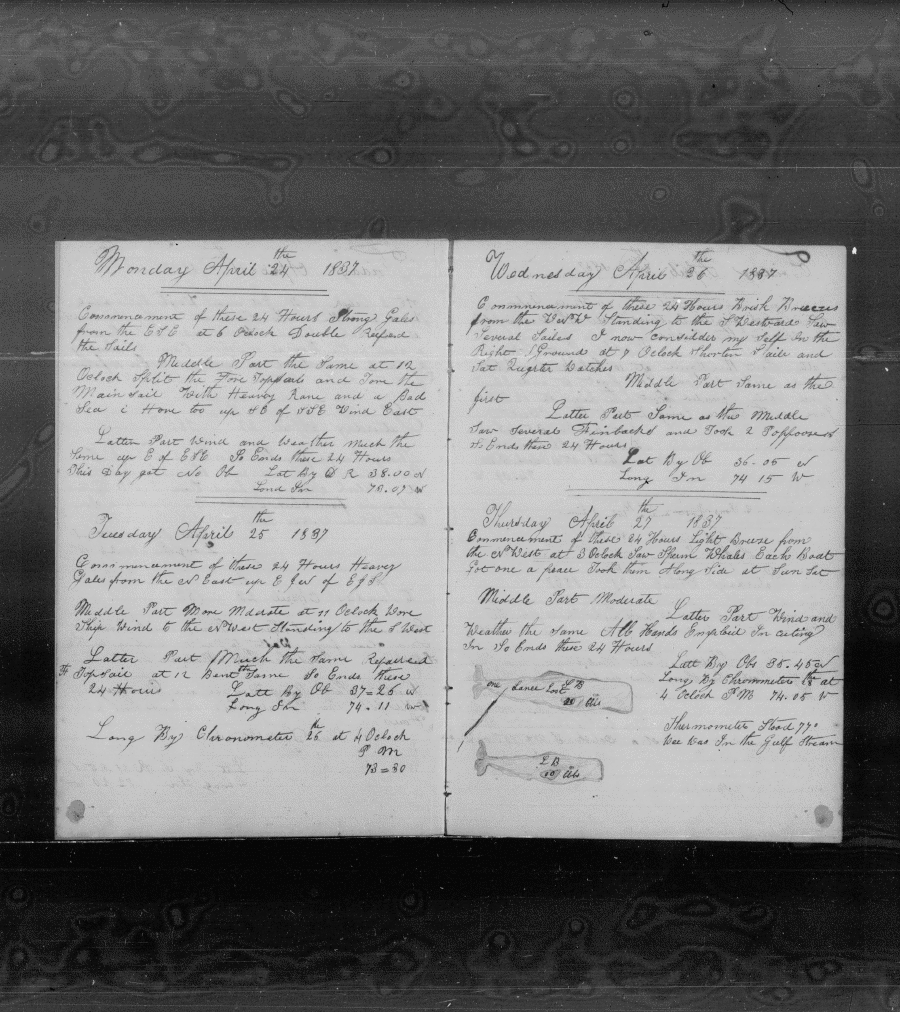 Monday April 24 the 1837
Commencement of these 24 Hours Strong Gales
from the ESE at 6 Oclock Double Reefed
the Sails
Middle Part the Same at 12
Oclock Split the Fore Topsail and Tore the
Main Sail With Heavey Rane and a Bad
Sea i Hove too up NE of Wind East
Latter Part Wind and Weather Much the
Same up E of ESE So Ends these 24 Hours
This Day got No Ob Lat By D R 38.00 N
Lond In 73.07 W
Tuesday April 25 the 1837
Commencement of these 24 Hours Heavey
Gales from the N East up E of
Middle Part More Mderate at 11 Oclock Wore
Ship Wind to the N West Standing to the S West
Latter Part Much the Same Repaired
Topsail at 12 Bent the Same So Ends these
24 Hours Latt By Ob 37=26 N
Long In 74-11 W
Long By Chronometer 25 th at 4 Oclock
P M
73=30
Wednesday April 26 the 1837
Commnencement of these 24 Hours Brisk Breezes
from the WNW Standing to the S Westward Saw
Several Sailes I now considder my Self In the
Right Ground at 7 Oclock Shorten Saile and
Sat Quarter Watches
Middle Part Same as the
first
Latter Part Same as the Middle
Saw Several Finbacks and Took 2
So Ends these 24 Hours
Lat By Ob 36-05 N
Long In 74 15 W
Thursday April 27 the 1837
Commencement of these 24 Hours Light Breeze from
the N West at 3 Oclock Saw Sperm Whales Each Boat
Got one a peace Took them Along Side at Sun Sat
Middle Part Moderate
Latter Part Wind and
Weather the Same All Hands Emploid In cuting
In So Ends these 24 Hours
Latt By Obs 35.45 N
Long By Chrommeter at
4 Oclock P M 74.05 W
one Lance Lost L B
20 Bbls
Thermometer Stood 77°
Wee Was In the Gulf Stream
L B
10 Bbls